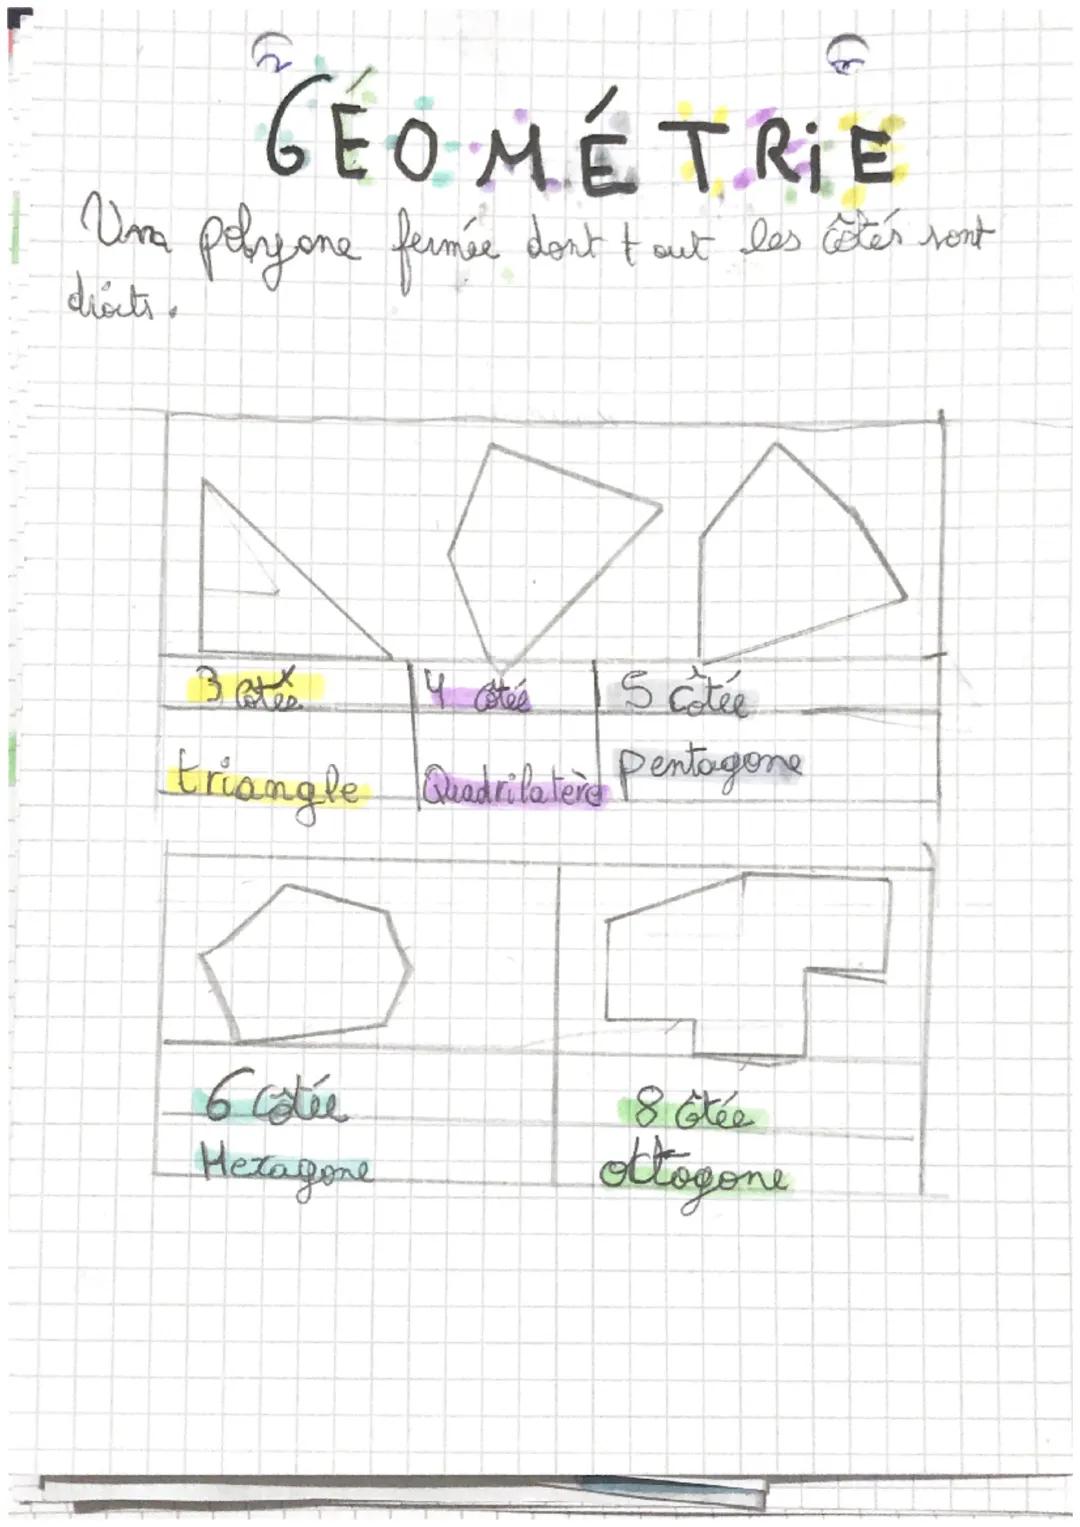 GÉOMÉTRIE
Una polygone fermée dont tout les côtés sont
droits.
3 Cotée
4 Côtéé
5 Côtée
triangle
Quadrilatère
pentagone
6 Côtée
8 Côtée
Hexagone
octogone